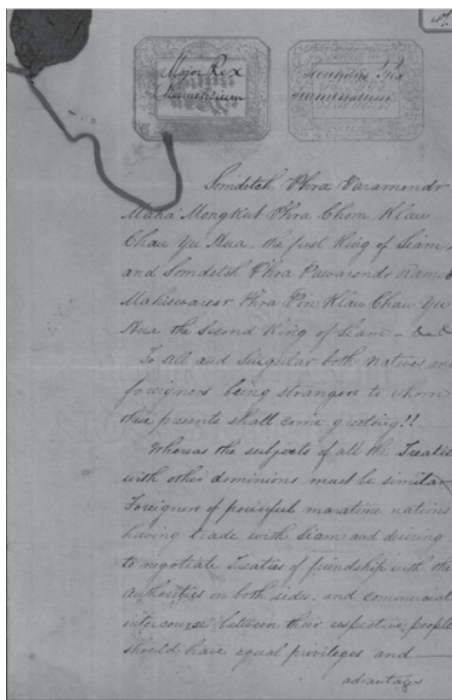 Major Rex
Siamensium
Secundus Rex
Siamensium
Somdetch Phra Paramendr
Maha Mongkut Phra Chom Klaw
Chau Yu Hua, the first King of Siam,
and Somdetch Phra Pawarendr Rames
Mahiswaresr Phra Pin Klaw Chau Yu
Hua the Second King of Siam - &c &c
To all and singular both natives and
foreigners being strangers to whom
these presents shall come greeting!!
Whereas the subjects of all the Treaties
with other dominions must be similar
Foreigners of powerful maratime nations
having trade with Siam and desiring
to negotiate Treaties of friendship with the
authorities on both sides, and commercial
intercourse between their respective people
should have equal privileges and —
advantages